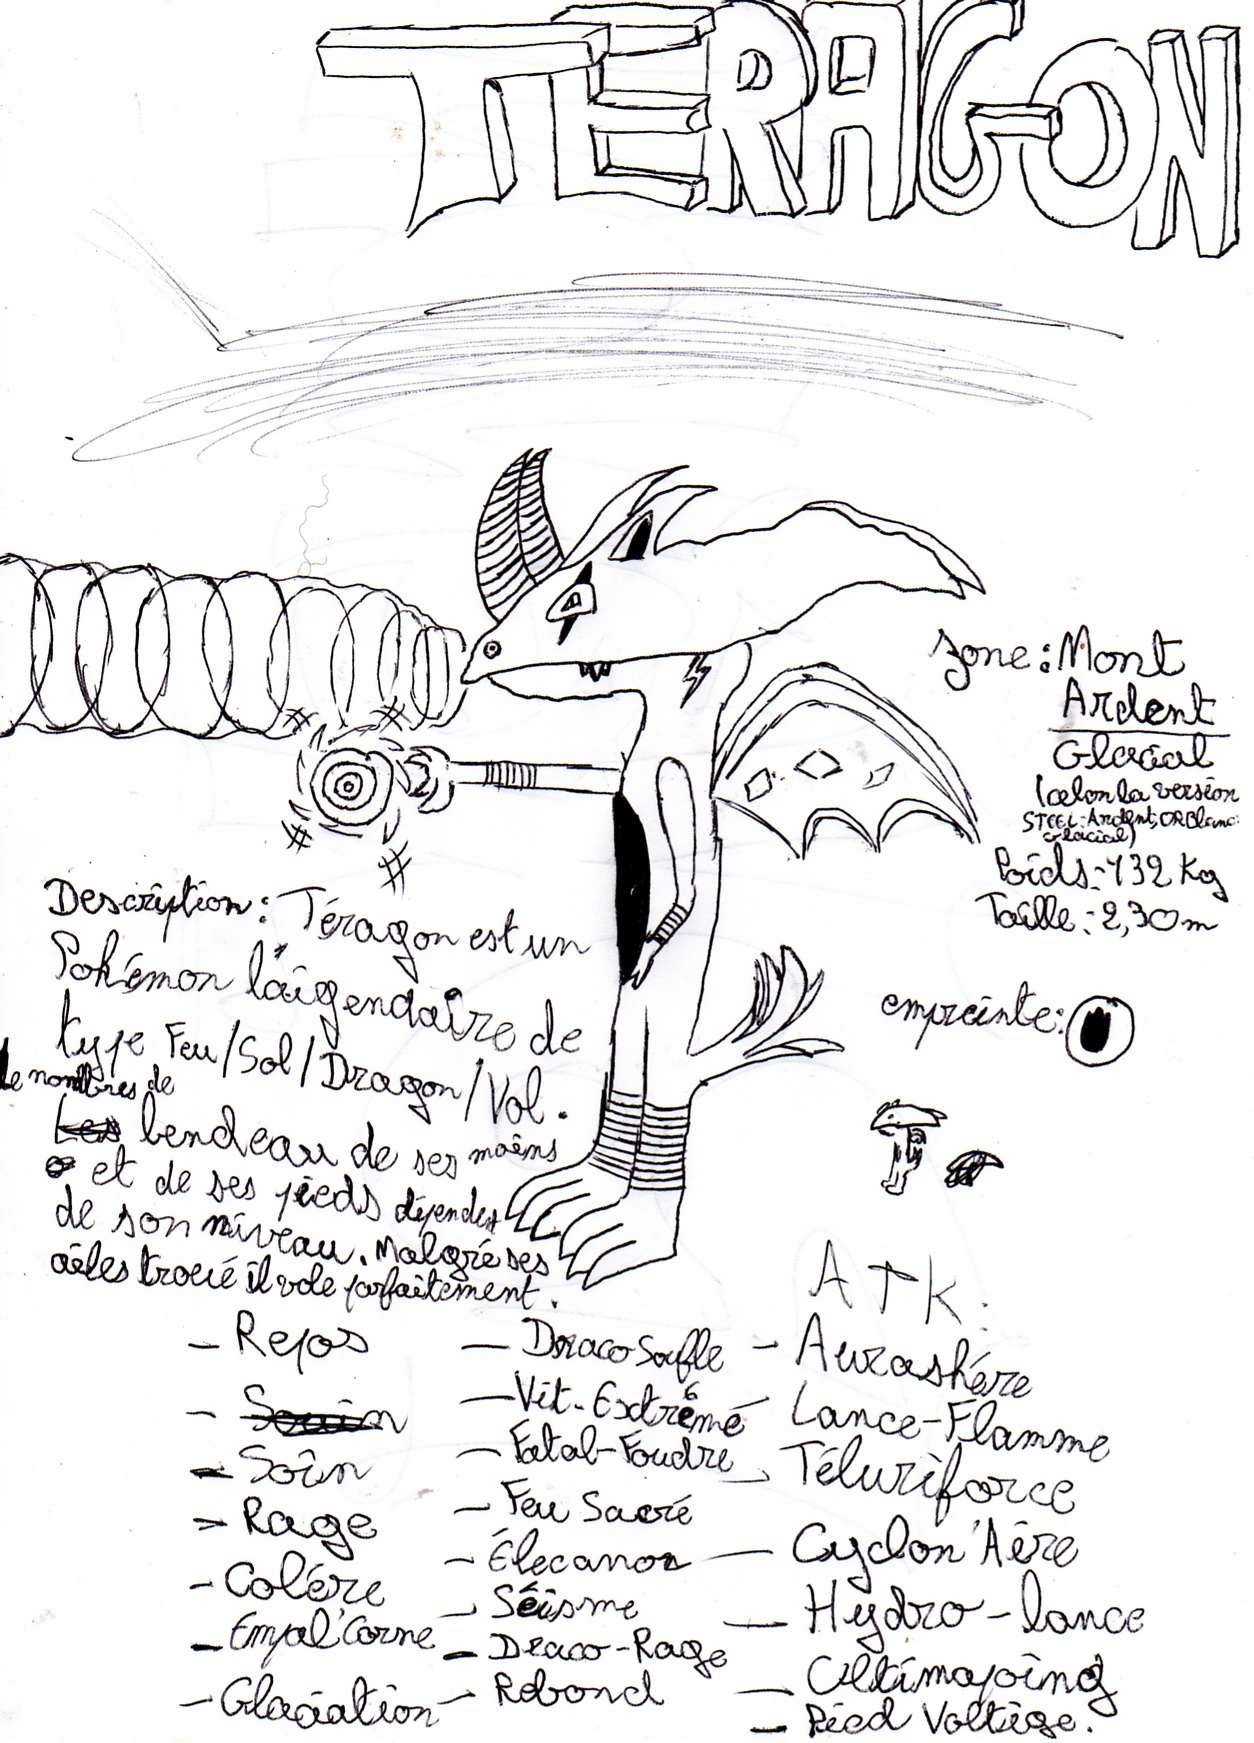 TERAGON
zone : Mont
Ardent
Glacial
(celon la version
STEEL : Ardent; OR Blanc :
Glacial)
Poids : 132 Kg
Taille : 2,30 m
Description : Téragon est un
Pokémon laigendaire de
type Feu/Sol/Dragon/Vol.
Le nombres de
bendeau de ses mains
et de ses pieds dépendent
de son niveau. Malgré ses
ailes troué il vole parfaitement.
empreinte :
ATK :
- Repos
- Souin
- Soin
- Rage
- Colére
- Empal'Corne
- Glaciation
- Draco Soufle
- Vit. Extrême
- Fatal-Foudre
- Feu Sacré
- Élecanon
- Séisme
- Draco-Rage
- Rebond
- Aurashére
- Lance-Flamme
- Téluriforce
- Cyclon'Aire
- Hydro-lance
- Ultimapoing
- Pied Voltige.